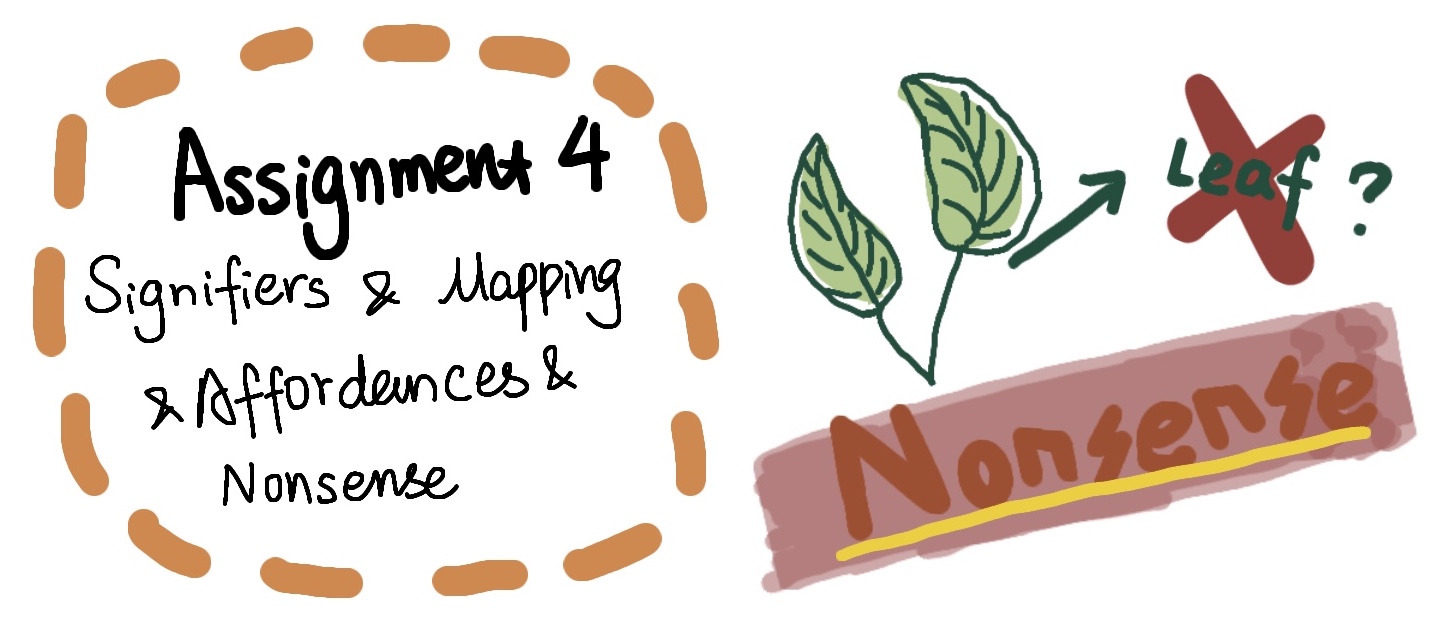 Assignment 4
Signifiers & Mapping
& Affordances &
Nonsense
Leaf ?
Nonsense